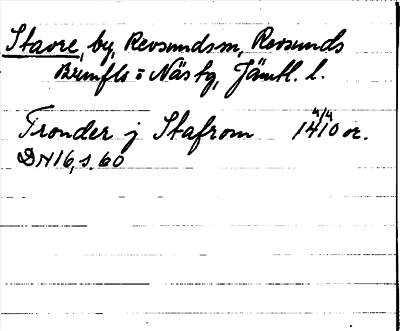 Stavre, by, Revsundsm, Revsunds
Brunflo o Näs tg, Jämtl. l.
Tronder j Stafrom 1410 4/4 or.
DN16, s. 60